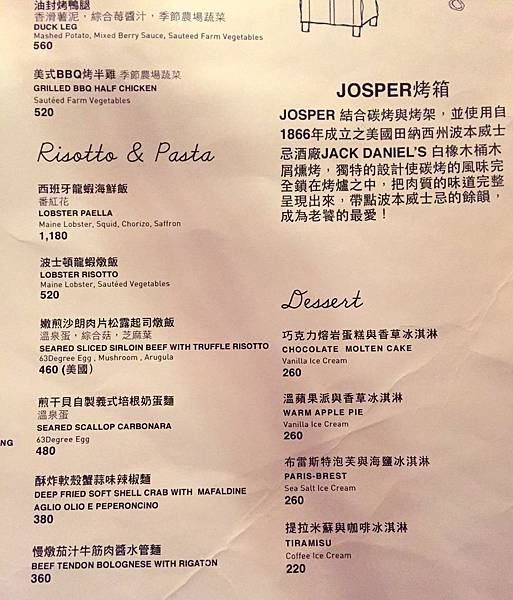 油封烤鴨腿
香滑薯泥，綜合莓醬汁，季節農場蔬菜
DUCK LEG
Mashed Potato, Mixed Berry Sauce, Sauteed Farm Vegetables
560
美式BBQ烤半雞 季節農場蔬菜
GRILLED BBQ HALF CHICKEN
Sautéed Farm Vegetables
520
Risotto & Pasta
西班牙龍蝦海鮮飯
番紅花
LOBSTER PAELLA
Maine Lobster, Squid, Chorizo, Saffron
1,180
波士頓龍蝦燉飯
LOBSTER RISOTTO
Maine Lobster, Sautéed Vegetables
520
嫩煎沙朗肉片松露起司燉飯
溫泉蛋，綜合菇，芝麻葉
SEARED SLICED SIRLOIN BEEF WITH TRUFFLE RISOTTO
63Degree Egg , Mushroom , Arugula
460 (美國)
煎干貝自製義式培根奶蛋麵
溫泉蛋
SEARED SCALLOP CARBONARA
63Degree Egg
480
酥炸軟殼蟹蒜味辣椒麵
DEEP FRIED SOFT SHELL CRAB WITH MAFALDINE
AGLIO OLIO E PEPERONCINO
380
慢燉茄汁牛筋肉醬水管麵
BEEF TENDON BOLOGNESE WITH RIGATON
360
NG
JOSPER烤箱
JOSPER 結合碳烤與烤架，並使用自
1866年成立之美國田納西州波本威士
忌酒廠JACK DANIEL'S 白橡木桶木
屑燻烤，獨特的設計使碳烤的風味完
全鎖在烤爐之中，把肉質的味道完整
呈現出來，帶點波本威士忌的餘韻，
成為老饕的最愛！
Dessert
巧克力熔岩蛋糕與香草冰淇淋
CHOCOLATE MOLTEN CAKE
Vanilla Ice Cream
260
溫蘋果派與香草冰淇淋
WARM APPLE PIE
Vanilla Ice Cream
260
布雷斯特泡芙與海鹽冰淇淋
PARIS-BREST
Sea Salt Ice Cream
260
提拉米蘇與咖啡冰淇淋
TIRAMISU
Coffee Ice Cream
220